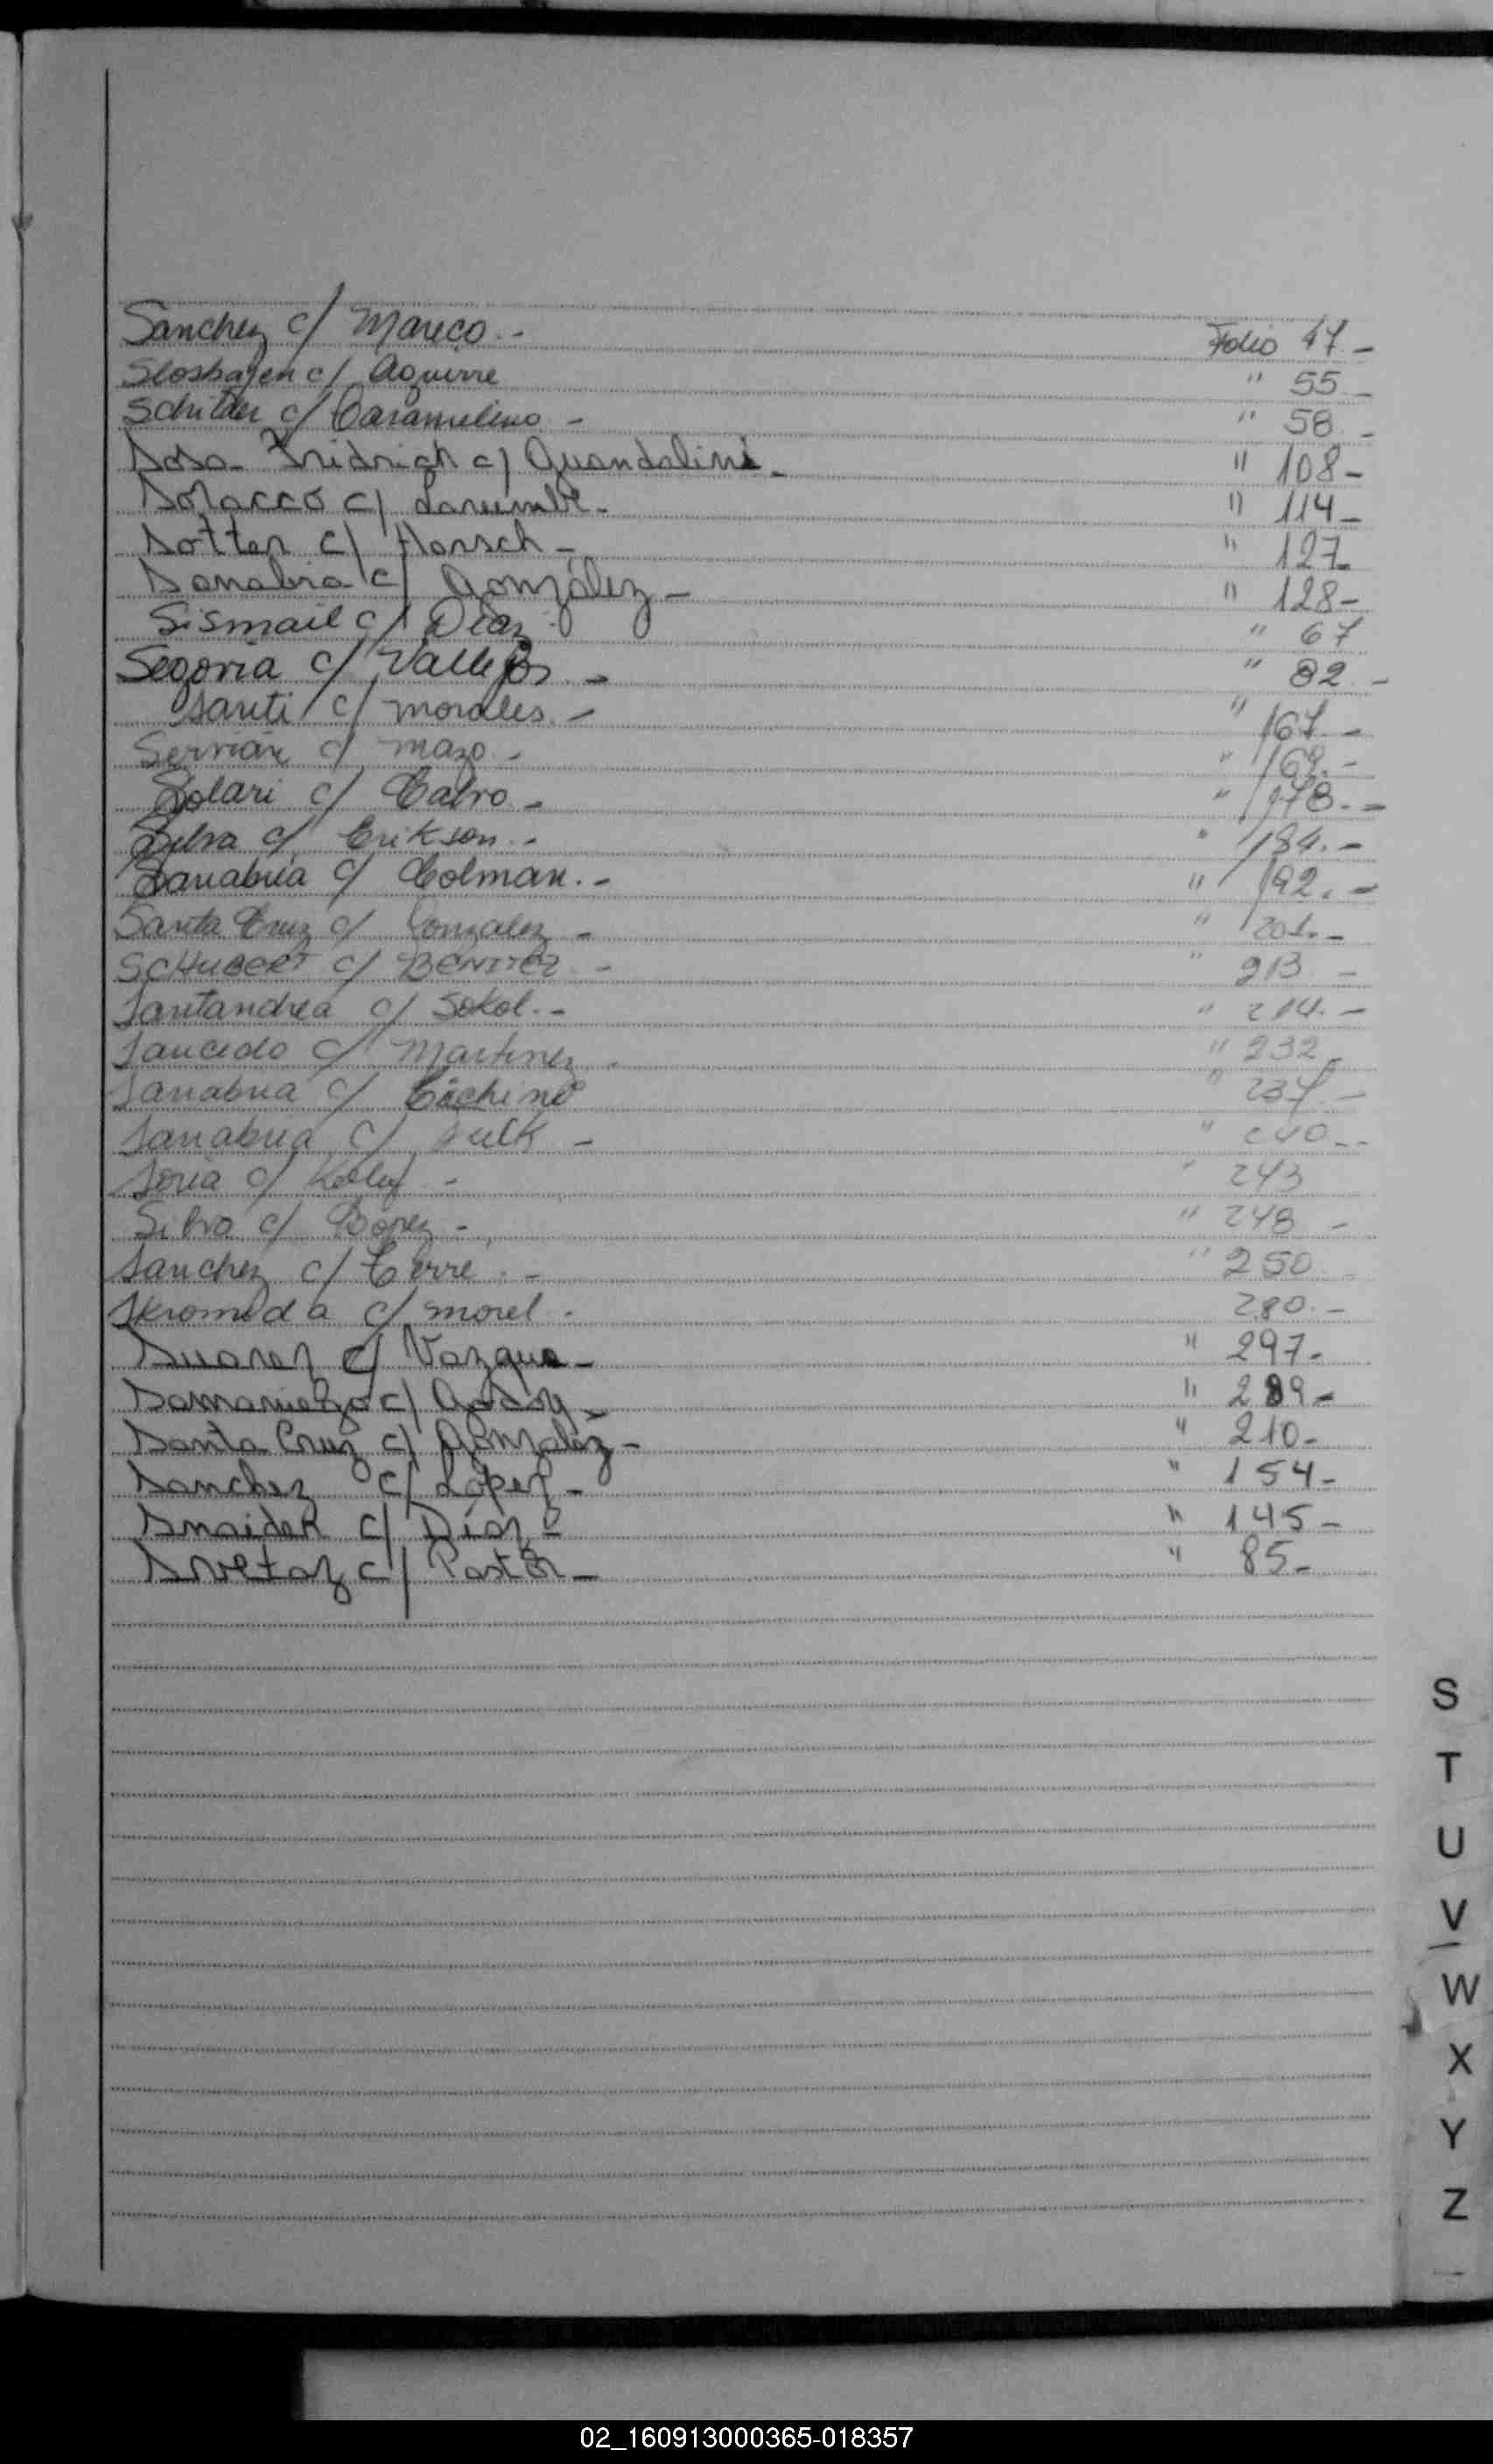 Sanchez c/ Mareco.- Folio 47.-
Slosbajen c/ Aguirre " 55.-
Schilder c/ Caramelino - " 58 -
Sosa Fridrich c/ Guandalini - " 108-
Soracco c/ " 114-
Sotter c/ Horsch - " 127-
Sanabria c/ González - " 128-
Sismail c/ Díaz - " 67
Segovia c/ Vallejos - " 82 -
Santi c/ Morales - " 167 -
Servián c/ mazo - " 169.-
Solari c/ Calvo - " 178.-
Silva c/ Erikson.- " 184.-
Sanabria c/ Colman.- " 192.-
Santa Cruz c/ Gonzalez - " 201.-
SCHUBERT c/ BENITEZ - " 213 -
Santandrea c/ Sokol.- " 214.-
Saucedo c/ Martinez - " 232
Sanabria c/ Cichino " 237.-
Sanabria c/ " 240.-
Soria c/ " 243
Silva c/ - " 248 -
Sanchez c/ - " 250 -
Skromeda c/ morel - 280.-
Suarez c/ Vazque - " 297-
Samaniego c/ Godoy - " 289-
Santa Cruz c/ González - " 210-
Sanchez c/ López - " 154-
Snaider c/ Díaz - " 145-
Svetaz c/ Pastor - " 85-
S
T
U
V
W
X
Y
Z
02_160913000365-018357